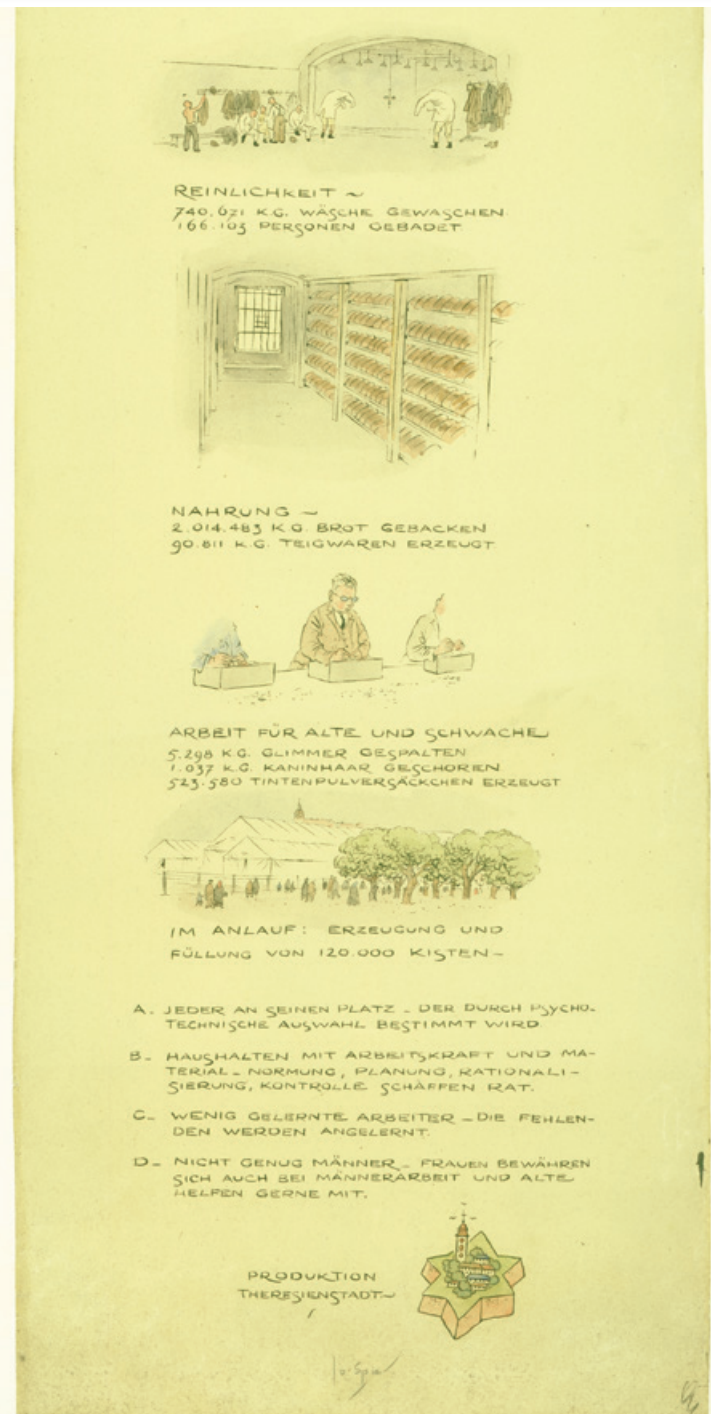 REINLICHKEIT ~
740.671 K.G. WÄSCHE GEWASCHEN
166.103 PERSONEN GEBADET
NAHRUNG ~
2.014.483 K.G. BROT GEBACKEN
90.811 K.G. TEIGWAREN ERZEUGT
ARBEIT FÜR ALTE UND SCHWACHE
5.298 K.G. GLIMMER GESPALTEN
1.037 K.G. KANINHAAR GESCHOREN
523.580 TINTENPULVERSÄCKCHEN ERZEUGT
IM ANLAUF: ERZEUGUNG UND
FÜLLUNG VON 120.000 KISTEN –
A. JEDER AN SEINEN PLATZ – DER DURCH PSYCHO-
TECHNISCHE AUSWAHL BESTIMMT WIRD
B – HAUSHALTEN MIT ARBEITSKRAFT UND MA-
TERIAL – NORMUNG, PLANUNG, RATIONALI-
SIERUNG, KONTROLLE SCHAFFEN RAT.
C – WENIG GELERNTE ARBEITER – DIE FEHLEN-
DEN WERDEN ANGELERNT.
D – NICHT GENUG MÄNNER – FRAUEN BEWÄHREN
SICH AUCH BEI MÄNNERARBEIT UND ALTE
HELFEN GERNE MIT.
PRODUKTION
THERESIENSTADT ~
Jo Spier